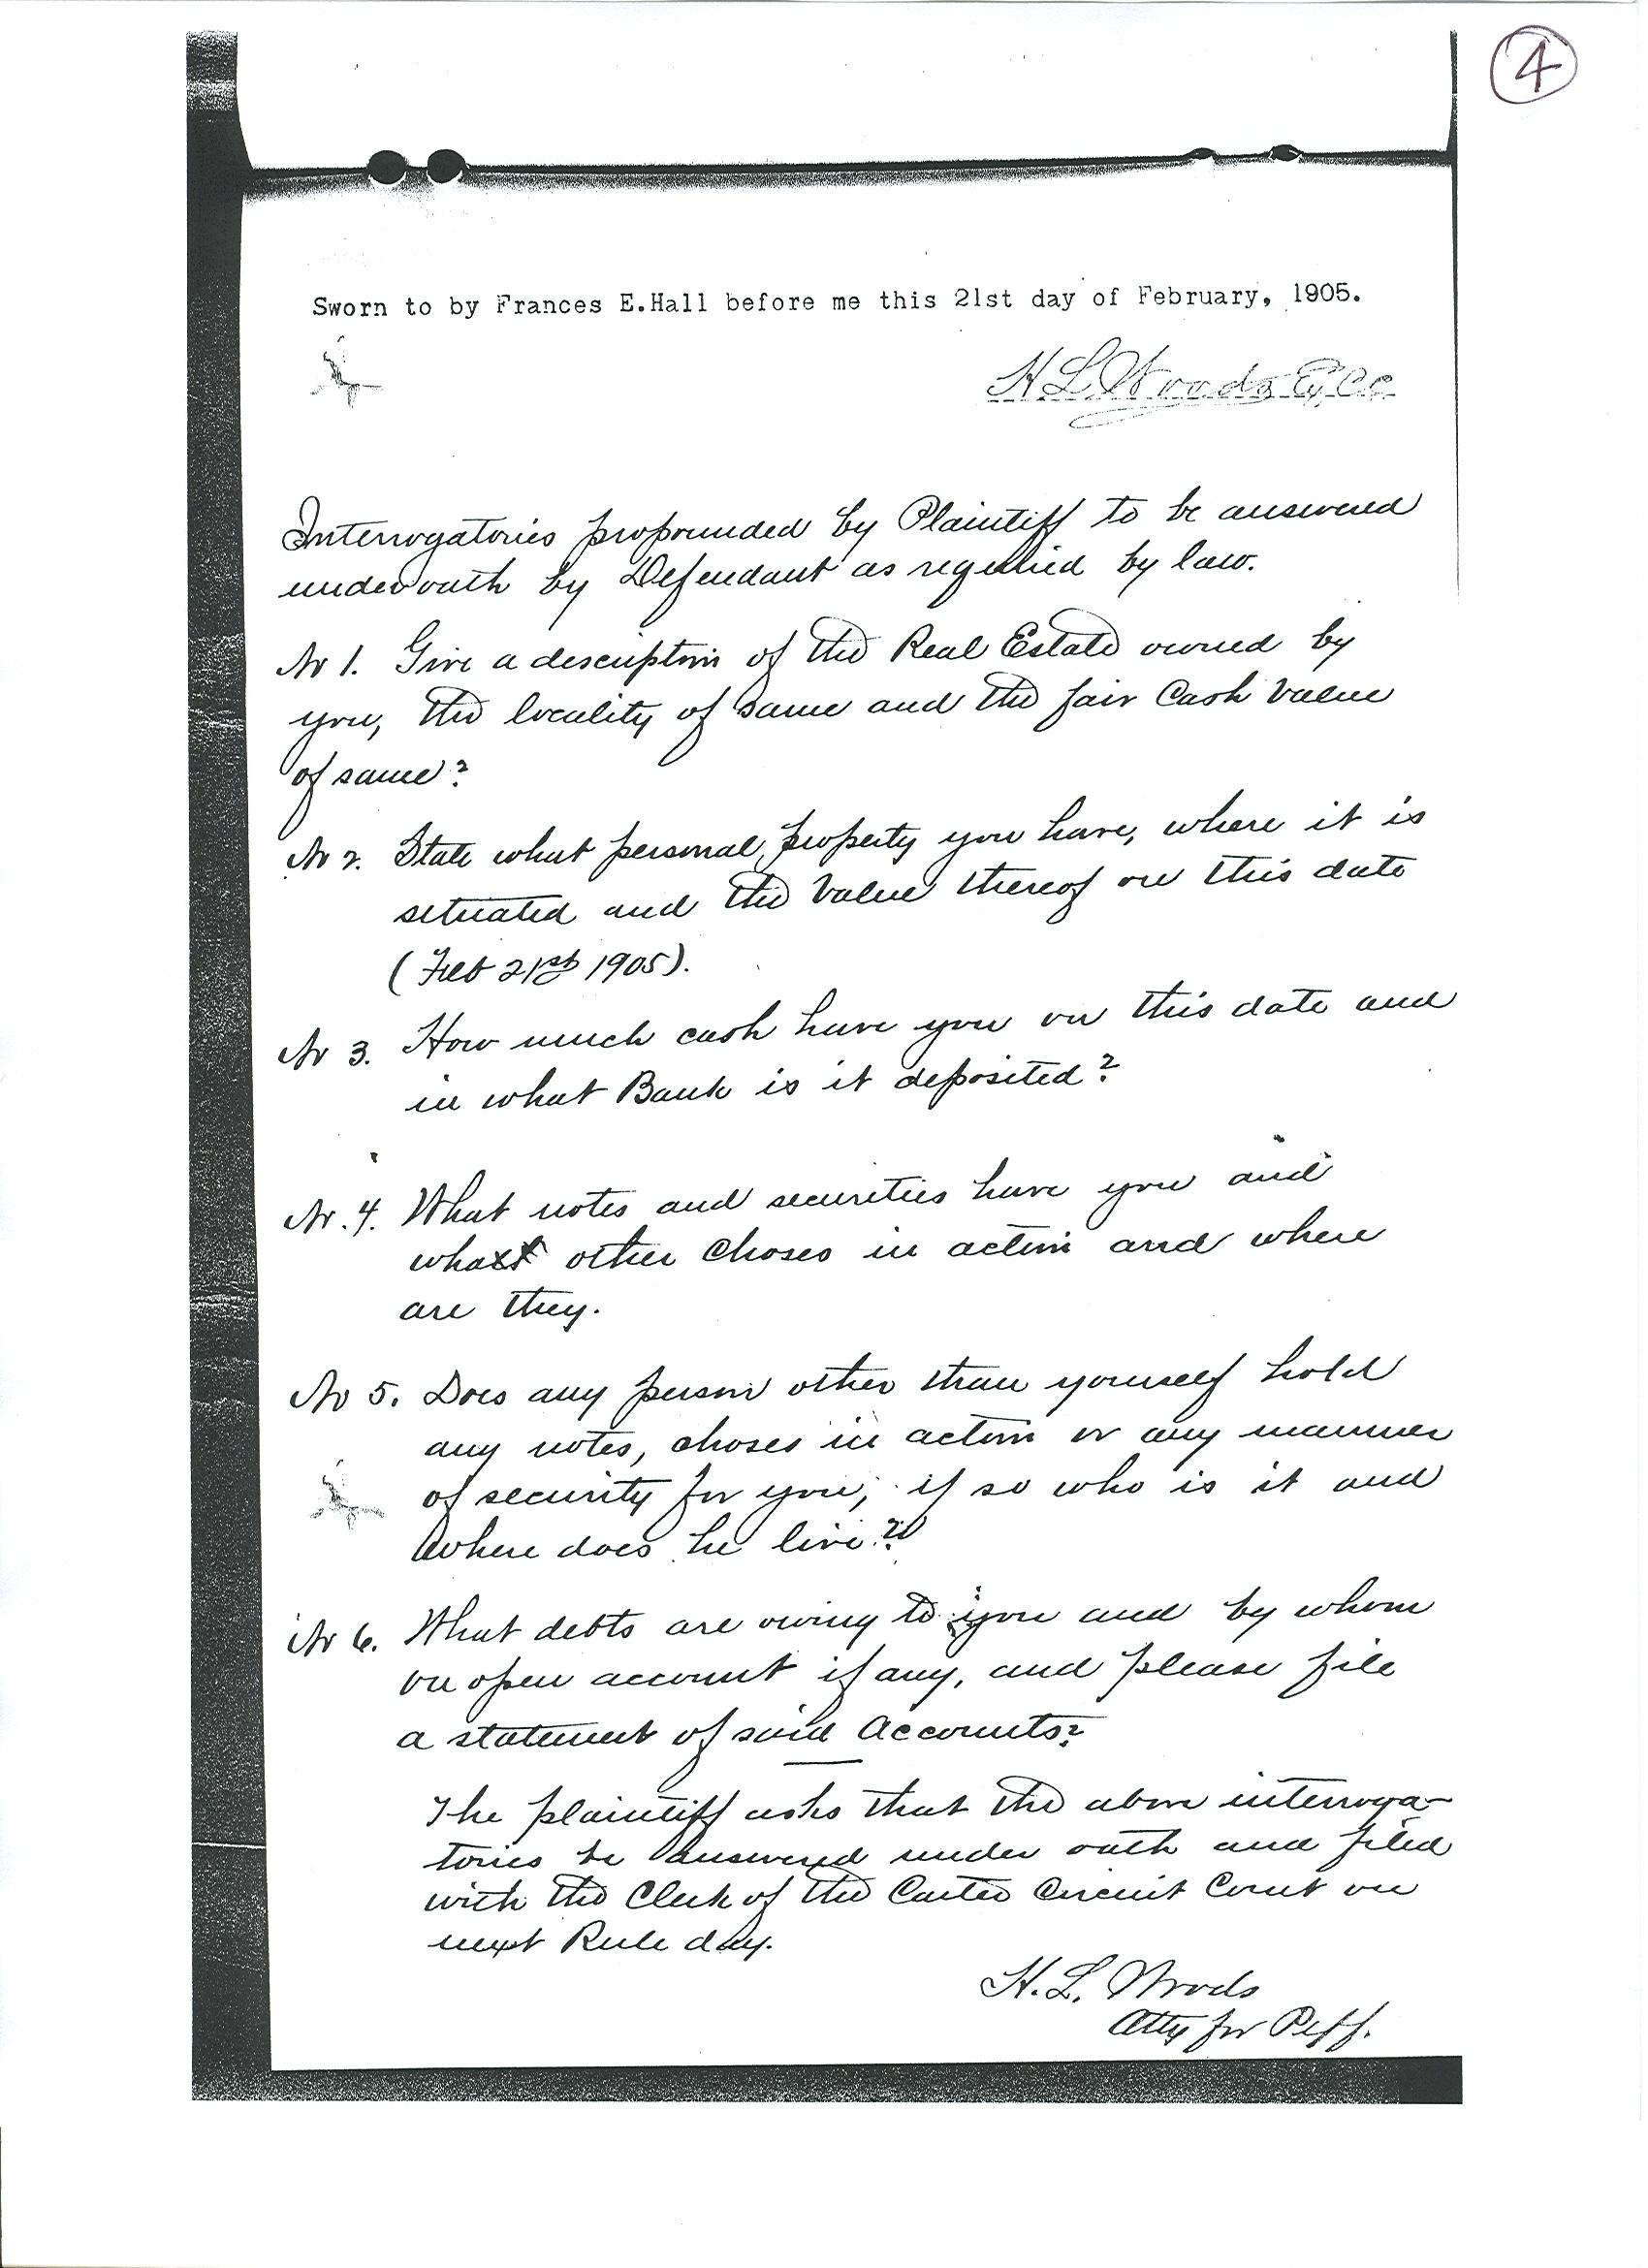 4
Sworn to by Frances E.Hall before me this 21st day of February, 1905.
H L Woods
Interrogatories propounded by Plaintiff to be answered
under oath by Defendant as required by law.
No 1. Give a description of the Real Estate owned by
you, the locality of same and the fair Cash Value
of same?
No 2. State what personal property you have, where it is
situated and the Value thereof on this date
(Feb 21st 1905).
No 3. How much cash have you on this date and
in what Bank is it deposited?
No. 4. What notes and securities have you and
what other Choses in action and where
are they.
No 5. Does any person other than yourself hold
any notes, choses in action or any manner
of security for you; if so who is it and
where does he live?
No 6. What debts are owing to you and by whom
on open account if any, and please file
a statement of said Accounts?
The plaintiff asks that the above interroga-
tories be answered under oath and filed
with the Clerk of the Carter Circuit Court on
next Rule day.
H. L. Woods
Atty for Plff.